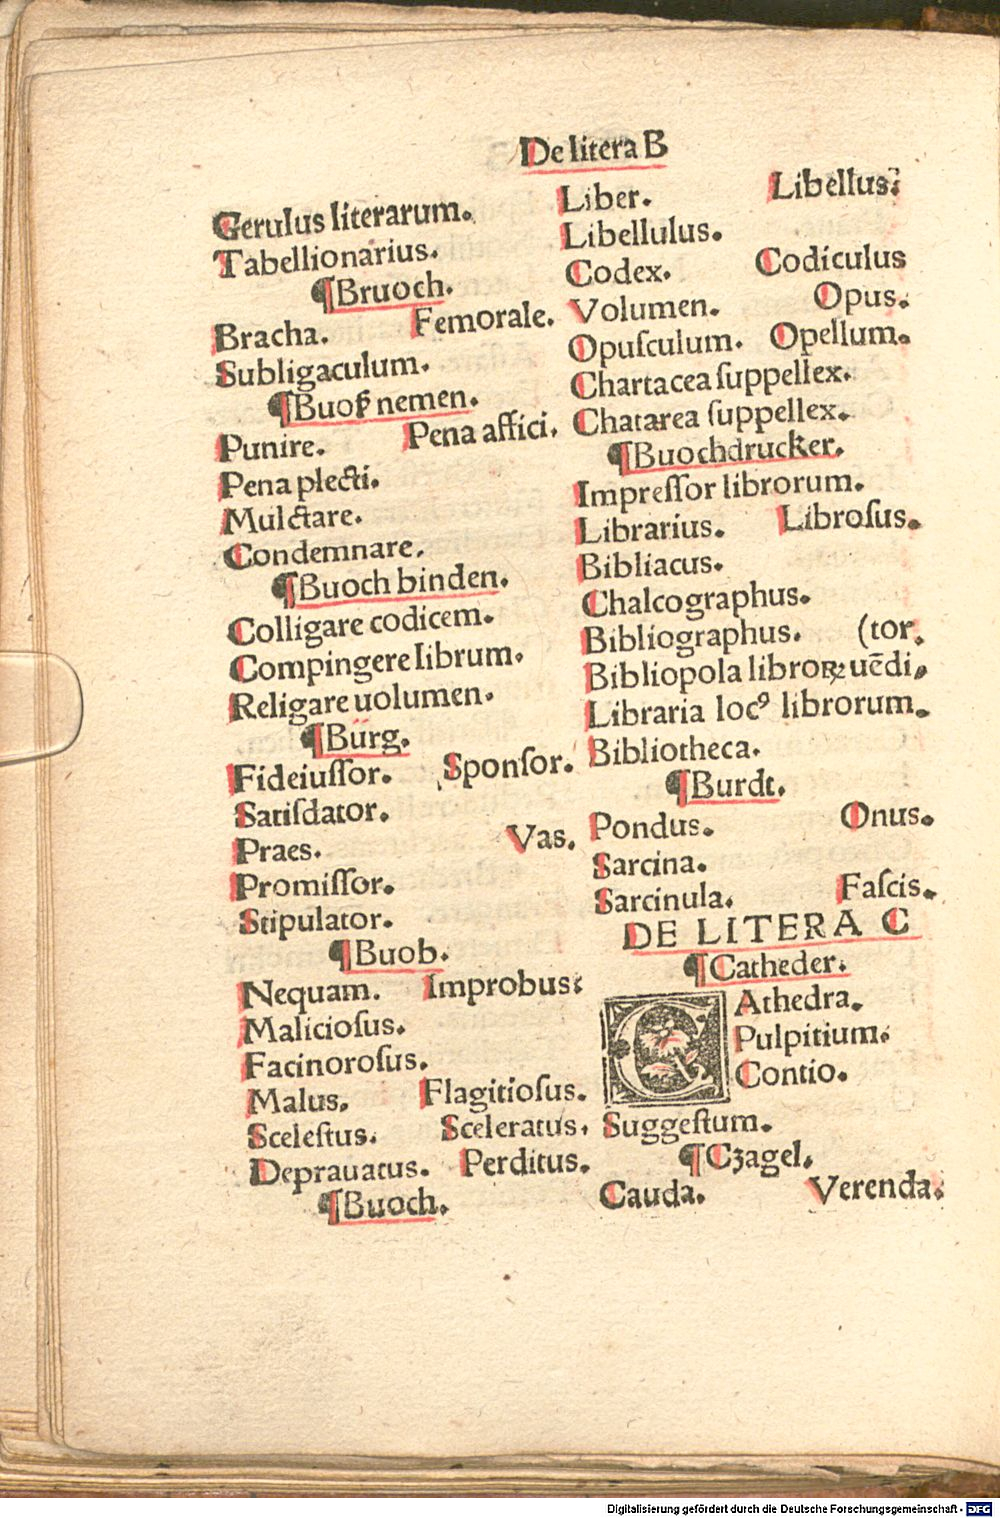 De litera B
Gerulus literarum.
Tabellionarius.
¶Bruoch.
Bracha. Femorale.
Subligaculum.
¶Buoſz nemen.
Punire. Pena affici.
Pena plecti.
Mulctare.
Condemnare.
¶Buoch binden.
Colligare codicem.
Compingere librum.
Religare uolumen.
¶Bürg.
Fideiuſſor. Sponſor.
Satiſdator.
Praes. Vas.
Promiſſor.
Stipulator.
¶Buob.
Nequam. Improbus:
Malicioſus.
Facinoroſus.
Malus. Flagitioſus.
Sceleſtus. Sceleratus.
Deprauatus. Perditus.
¶Buoch.
Liber. Libellus.
Libellulus.
Codex. Codiculus
Volumen. Opus.
Opuſculum. Opellum.
Chartacea ſuppellex.
Chatarea ſuppellex.
¶Buochdrucker.
Impreſſor librorum.
Librarius. Libroſus.
Bibliacus.
Chalcographus.
Bibliographus. (tor.
Bibliopola libroꝝ uēdi,
Libraria locꝰ librorum.
Bibliotheca.
¶Burdt.
Pondus. Onus.
Sarcina.
Sarcinula. Faſcis.
DE LITERA C
¶Catheder.
CAthedra.
Pulpitium.
Contio.
Suggeſtum.
¶Czagel.
Cauda. Verenda.
Digitalisierung gefördert durch die Deutsche Forschungsgemeinschaft - DFG